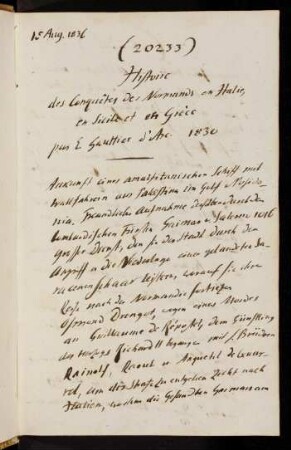 15 Aug. 1836
(20233)
Histoire
des Conquêtes des Normands en Italie,
en Sicile et en Grèce
par E. Gauttier d'Arc 1830
Ankunft eines amalfitanischen Schiffs mit
Wallfahrern aus Palästina im Golf v.
Freundliche Aufnahme
lombardischen Fürsten Guimar v. Salerno 1016
Große Dienst, den sie der Stadt durch den
Angriff u. die Niederlage einer gelandeten Sa-
racenenschaar leisten, worauf sie ihre
Reise nach der Normandie fortsetzen
Osmond Drengot, wegen eines Mordes
an Guillaume de Répostel, dem Günstling
des Herzogs Richard II begangen mit s. Brüdern
Rainolf, Raoul u. Anquetil de Quar-
rel, um der Strafe zu entgehen zieht nach
Italien, welchem die Gesandten Guimars